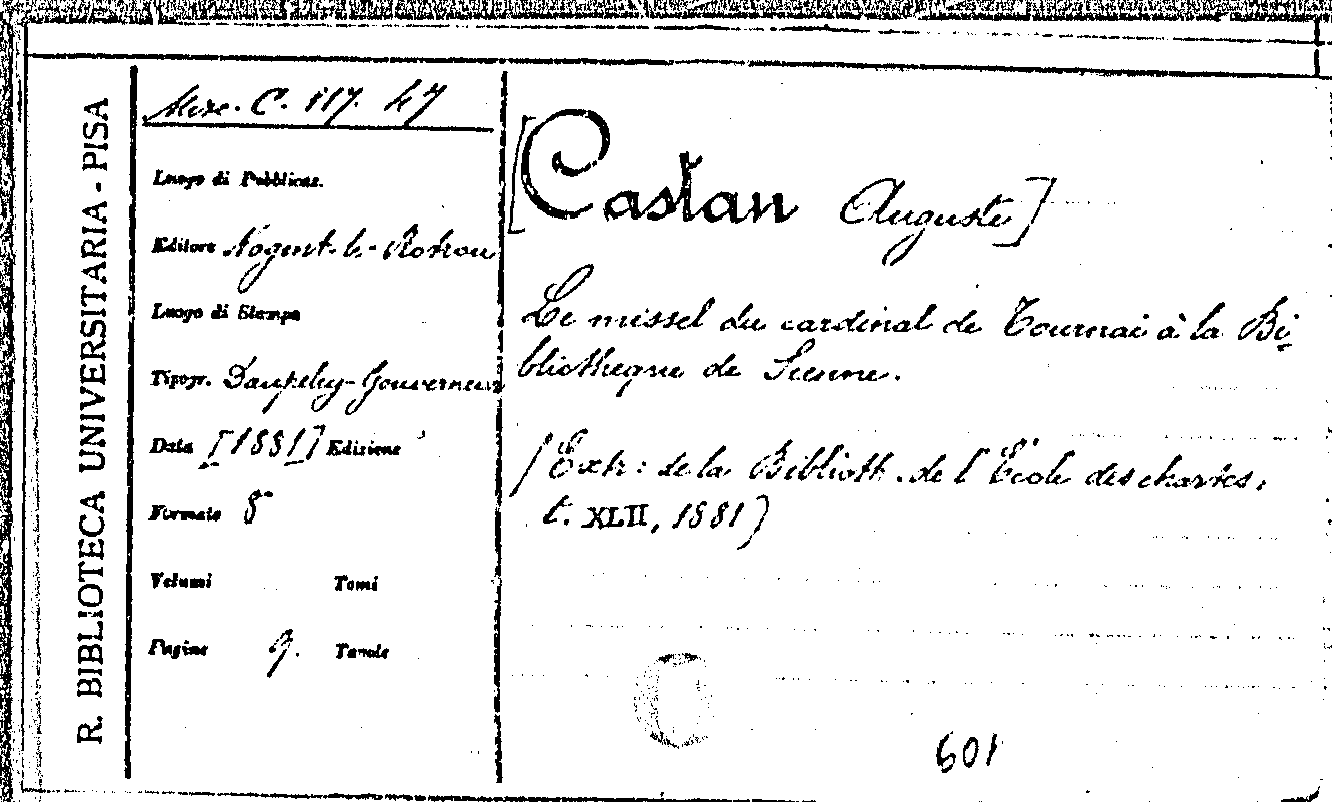 R. BIBLIOTECA UNIVERSITARIA - PISA
Misc. C. 117. 47
Luogo di Pubblicaz.
Editore Nogent-le-Rotrou
Luogo di Stampa
Tipogr. Daupeley-Gouverneur
Data [1881] Edizione
Formato 8°
Volumi Tomi
Pagine 9. Tavole
[Castan Auguste]
Le missel du cardinal de Tournai à la Bi-
bliotheque de Sienne.
(Extr: de la Biblioth. de l'École des chartes,
t. XLII, 1881)
601